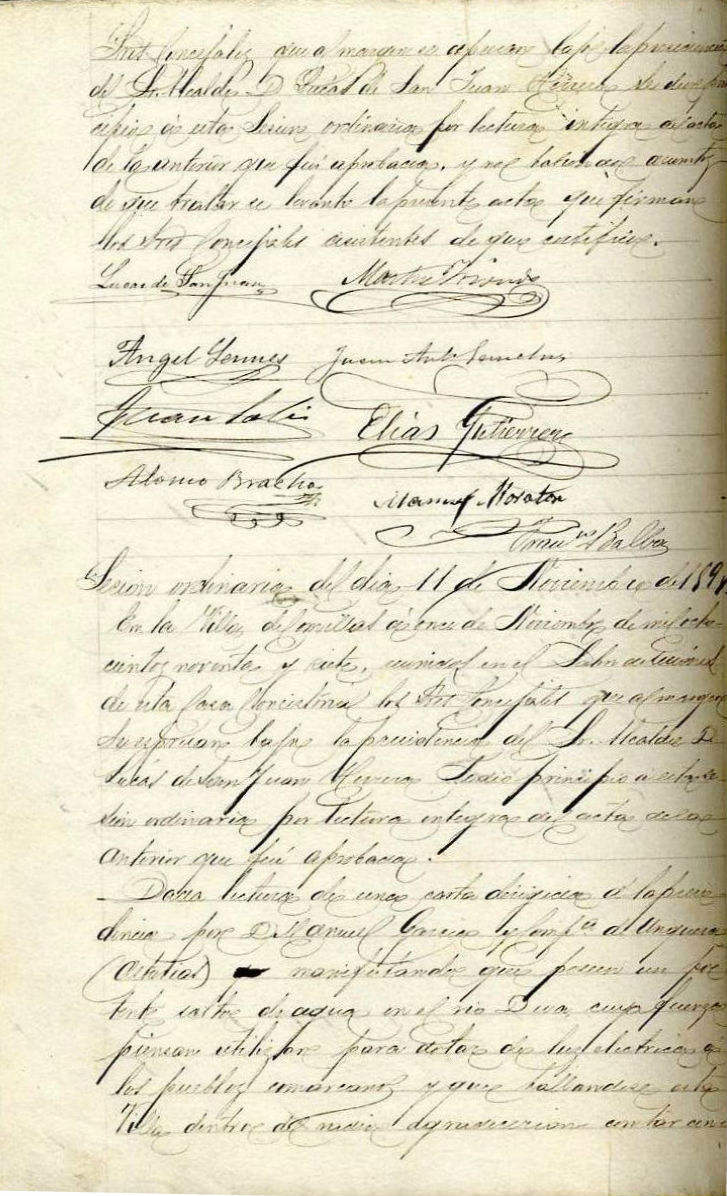 Sres Concejales que al margen se espresan bajo la presidencia
del Sr. Alcalde D. Lucas de San Juan Herrera se dió prin
cipio á esta Sesion ordinaria por lectura integra del acta
de la anterior que fué aprobada, y no habiendo asuntos
de que tratar se levanta la presente acta que firman
los Sres Concejales asistentes de que certifico.
Lucas de San Juan Martin
Angel Juan Antº
Juan Elias Gutierrez
Alonso Bracho Manuel Morator
Franco Balbas
Sesion ordinaria del dia 11 de Noviembre de 1897
En la Villa de Comillas á once de Noviembre de mil ocho-
cientos noventa y siete, reunidos en el Salon de sesiones
de esta Casa Consistorial los Sres Concejales que al margen
se espresan bajo la presidencia del Sr. Alcalde D.
Lucas de San Juan Herrera se dió principio á esta se-
sion ordinaria por lectura integra del acta de la
anterior que fué aprobada.
Dada lectura de una carta dirigida á la presi
dencia por D. Manuel Garcia y Compª de Unquera
(Asturias) manifestando que poseen un po
tente salto de agua en el rio Deva, cuya fuerza
piensan utilizar para dotar de luz electrica á
los pueblos comarcanos y que hallandose esta
Villa dentro del radio desearian contar con